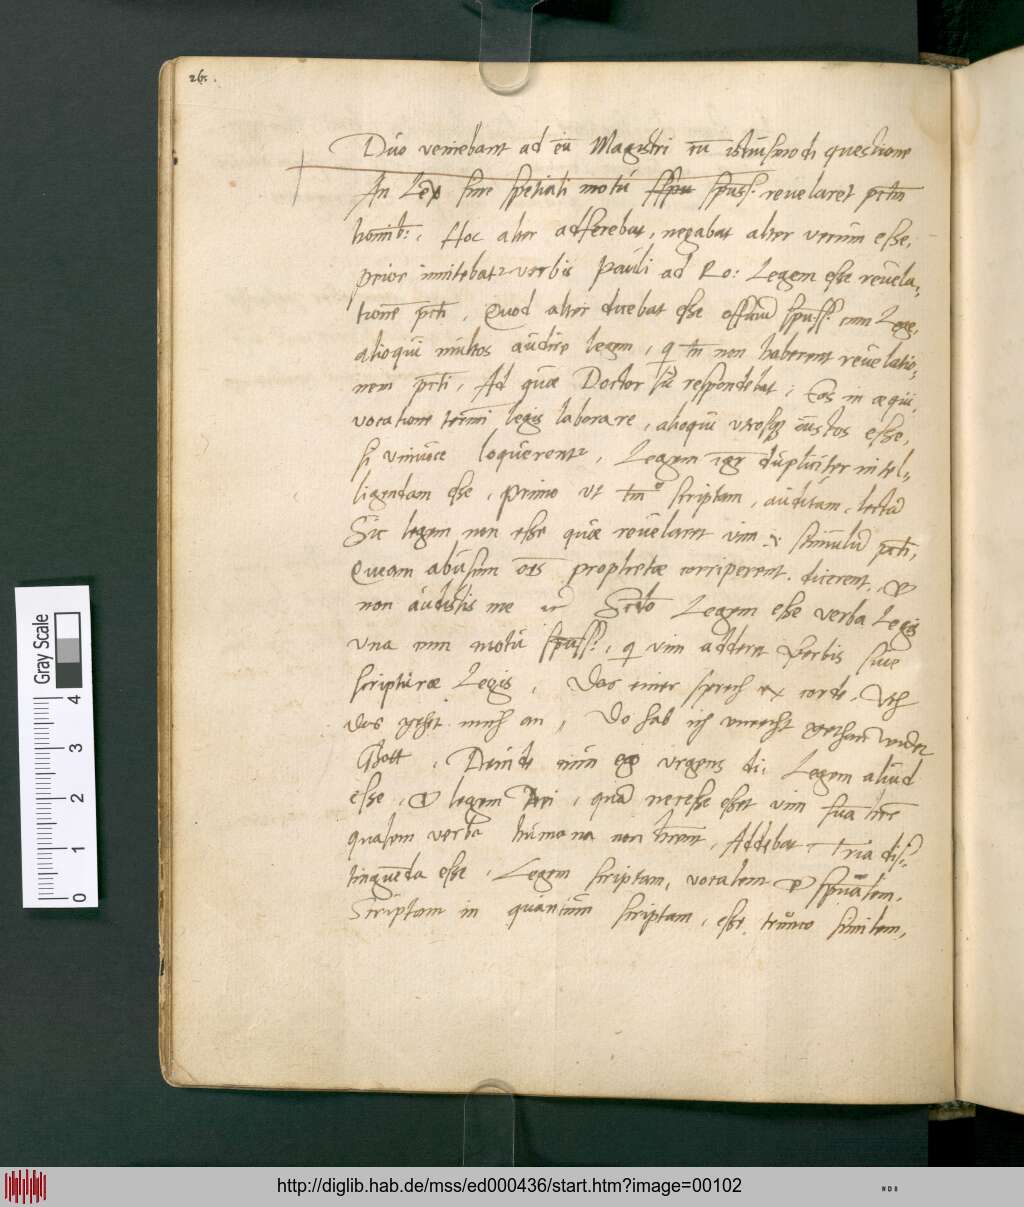 26.
Duo veniebant ad eū Magistri cū istiusmodi questione
An Lex sine spetiali motu spūss. revelaret pctm
hominibꝰ. Hoc alter adserebat, negabat alter verum esse,
prior innitebatur verbis Pauli ad Ro: Legem esse revela-
tionē pcti, Quod alter dicebat esse officiū spūss. cum Lege,
alioqui multos audire legem, q tn non haberent revelatio-
nem pcti, Ad quae Doctor sic respondebat, Eos in aequi-
vocatione termini legis laborare, alioqui utrosq
si univoce loquerentur, Legem igr dupliciter intel-
ligendam esse, primo ut tm scriptam, auditam, lectā
Sic legem non esse quae revelaret vim et stimulū pcti,
Quam abusum oēs prophetae corriperent, dicerent, et
non audistis me Scdo Legem esse verba Legis
una cum motu spūss, q vim adderet verbis sive
scripturae Legis, Das einer sprech ex corde. Ach
das gehet mich an, Do hab ich unrecht gethan wider
Gott, Deinde cum ego urgens di, Legem aliud
esse, et legem, quā necesse esset vim suā hrē
qualem verba humana non hrent, Addebat Tria dis-
tinguēda esse, Legem scriptam, vocalem et spūalem.
Scriptam in quantum scriptam, esse trunco similem,
Gray Scale
4
3
2
1
0
http://diglib.hab.de/mss/ed000436/start.htm?image=00102